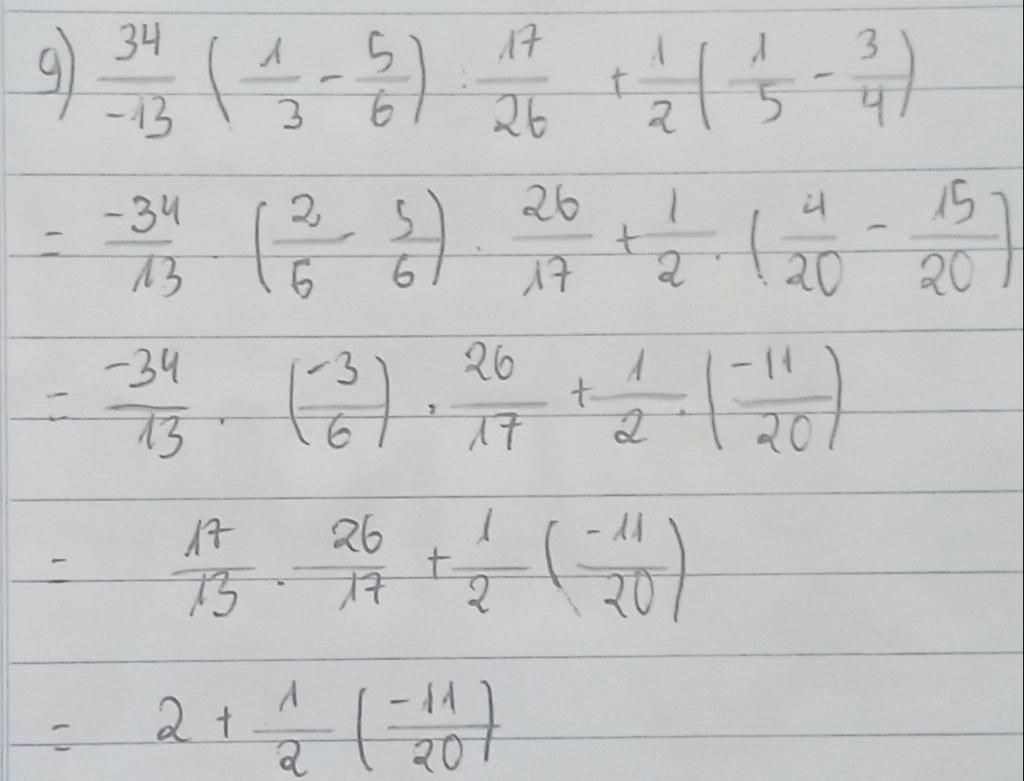 9) 34/-13 (1/3 - 5/6) : 17/26 + 1/2 (1/5 - 3/4)
= -34/13 · (2/6 - 5/6) · 26/17 + 1/2 · (4/20 - 15/20)
= -34/13 · (-3/6) · 26/17 + 1/2 · (-11/20)
= 17/13 · 26/17 + 1/2 (-11/20)
= 2 + 1/2 (-11/20)